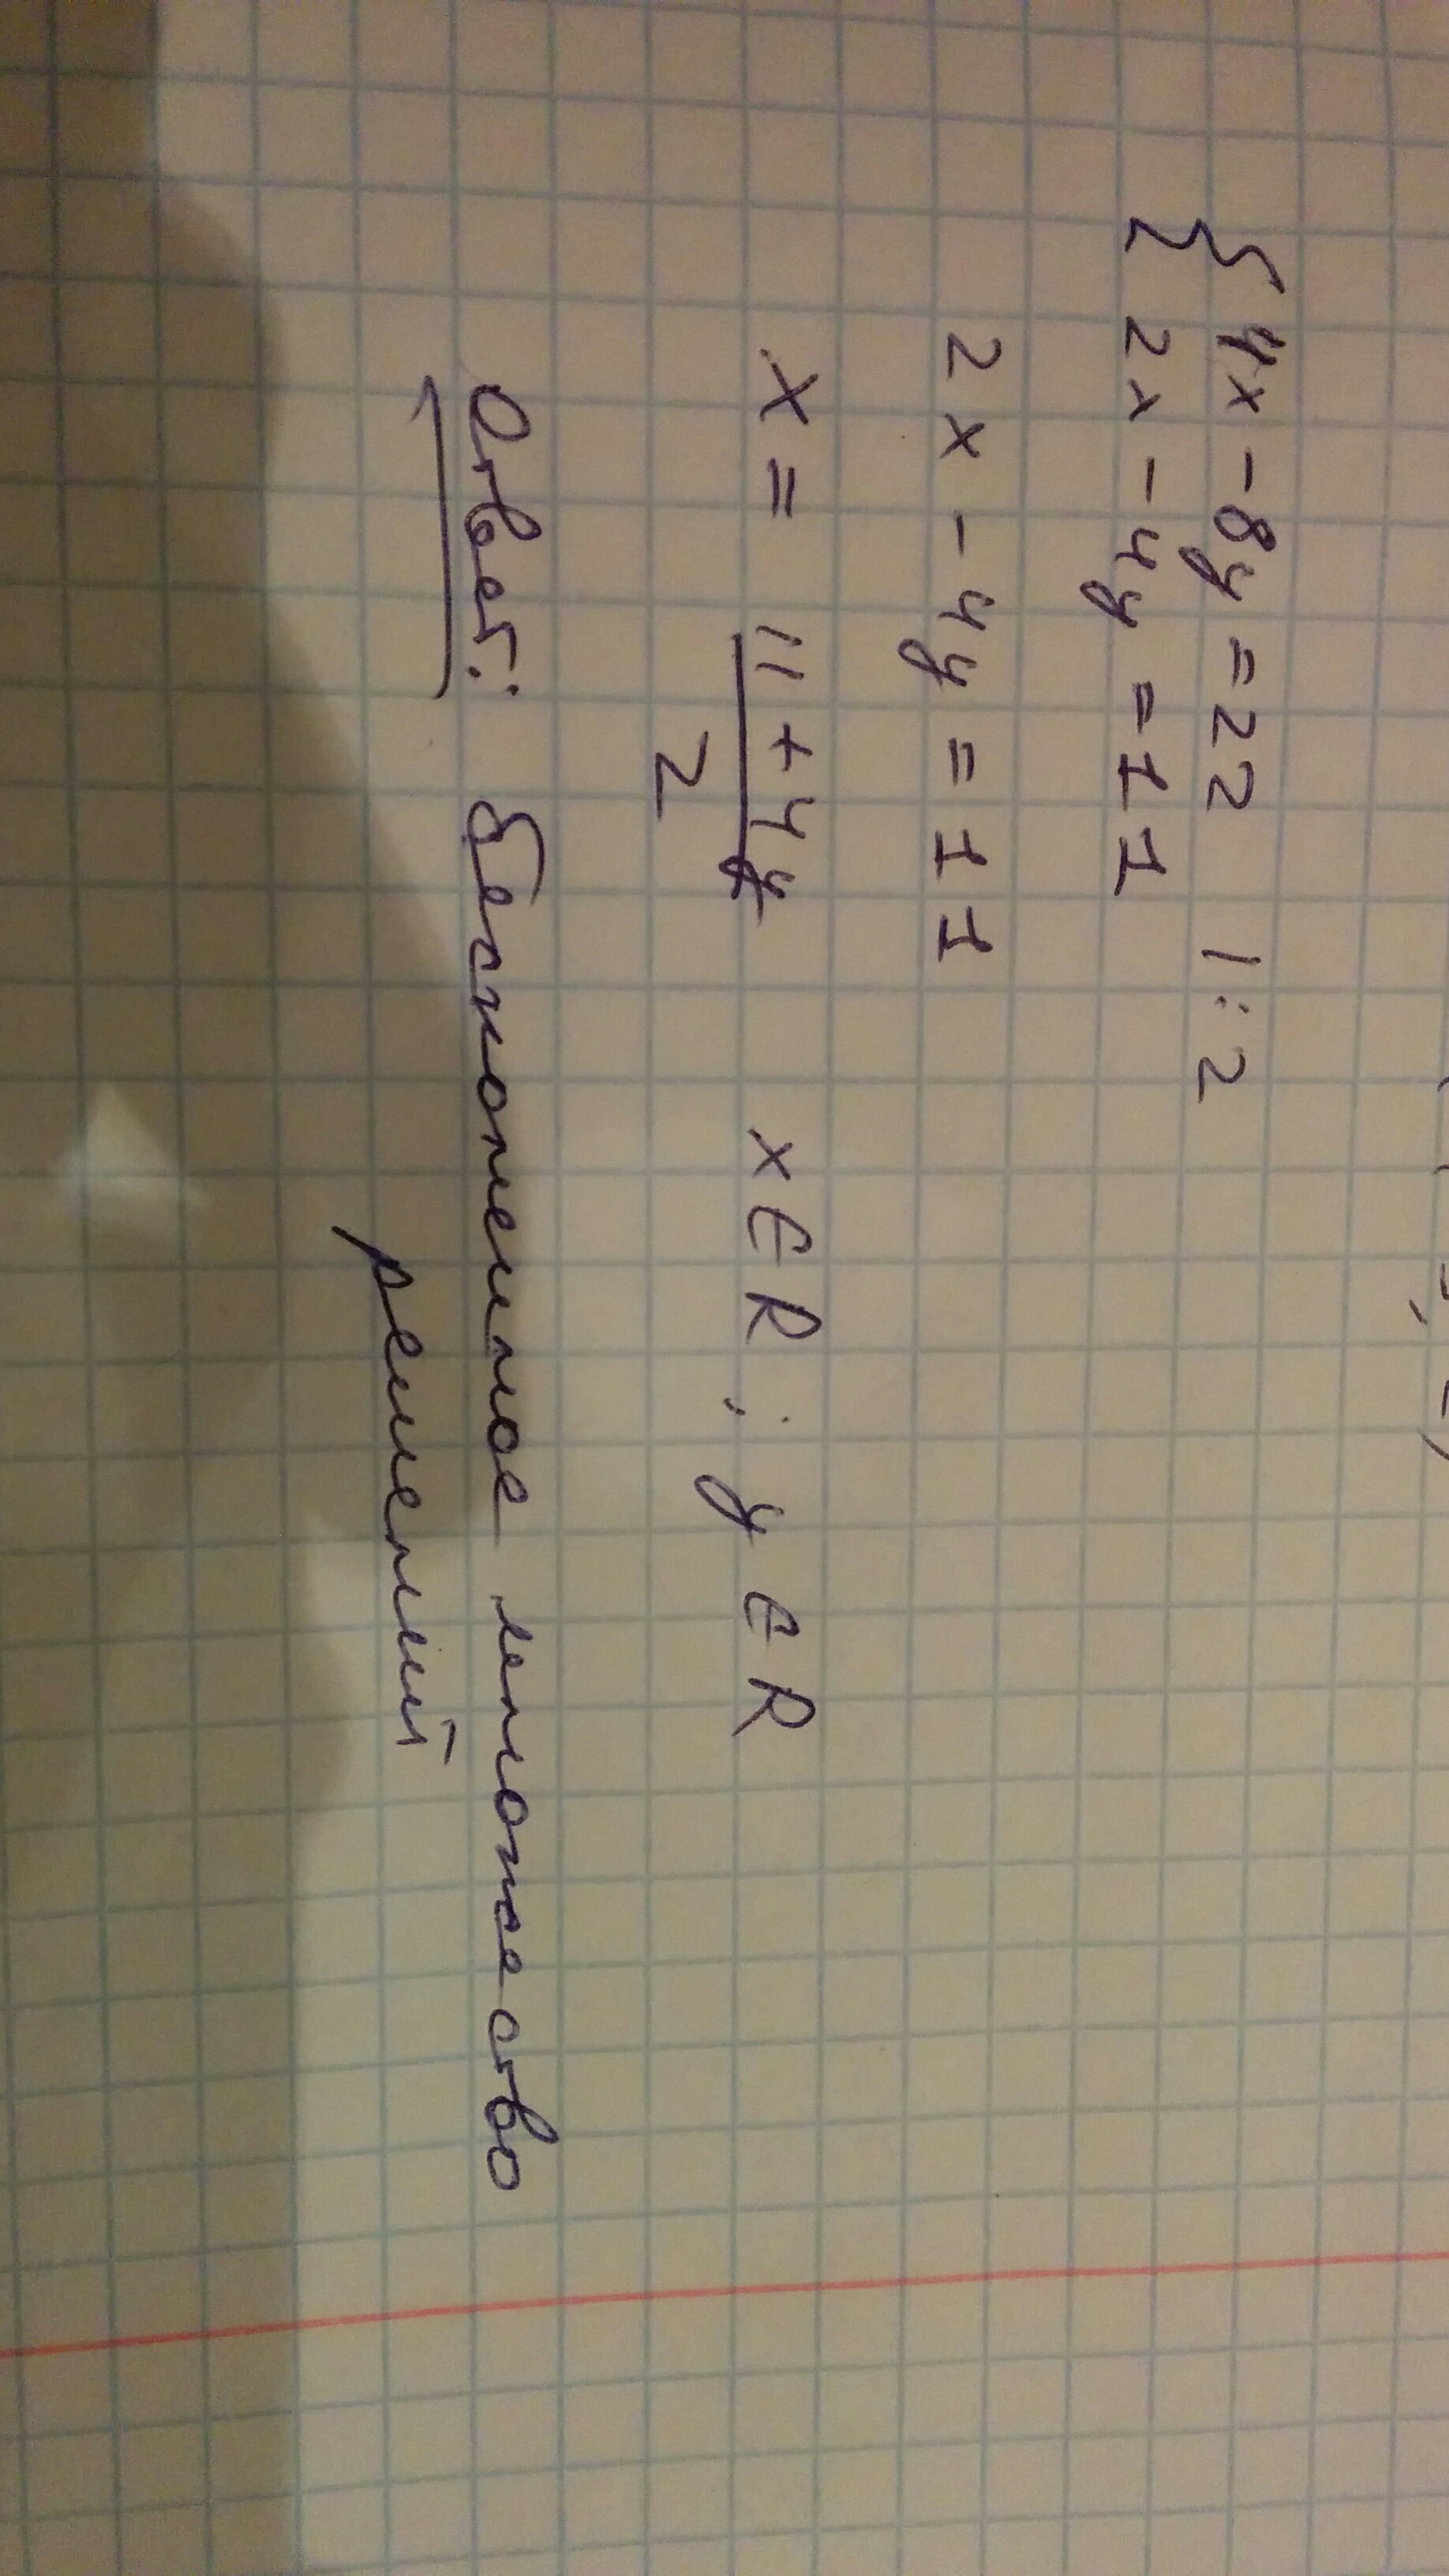 { 4x - 8y = 22 |: 2
2x - 4y = 11
2x - 4y = 11
x = 11 + 4y / 2 x ∈ R ; y ∈ R
Ответ: бесконечное множество
решений